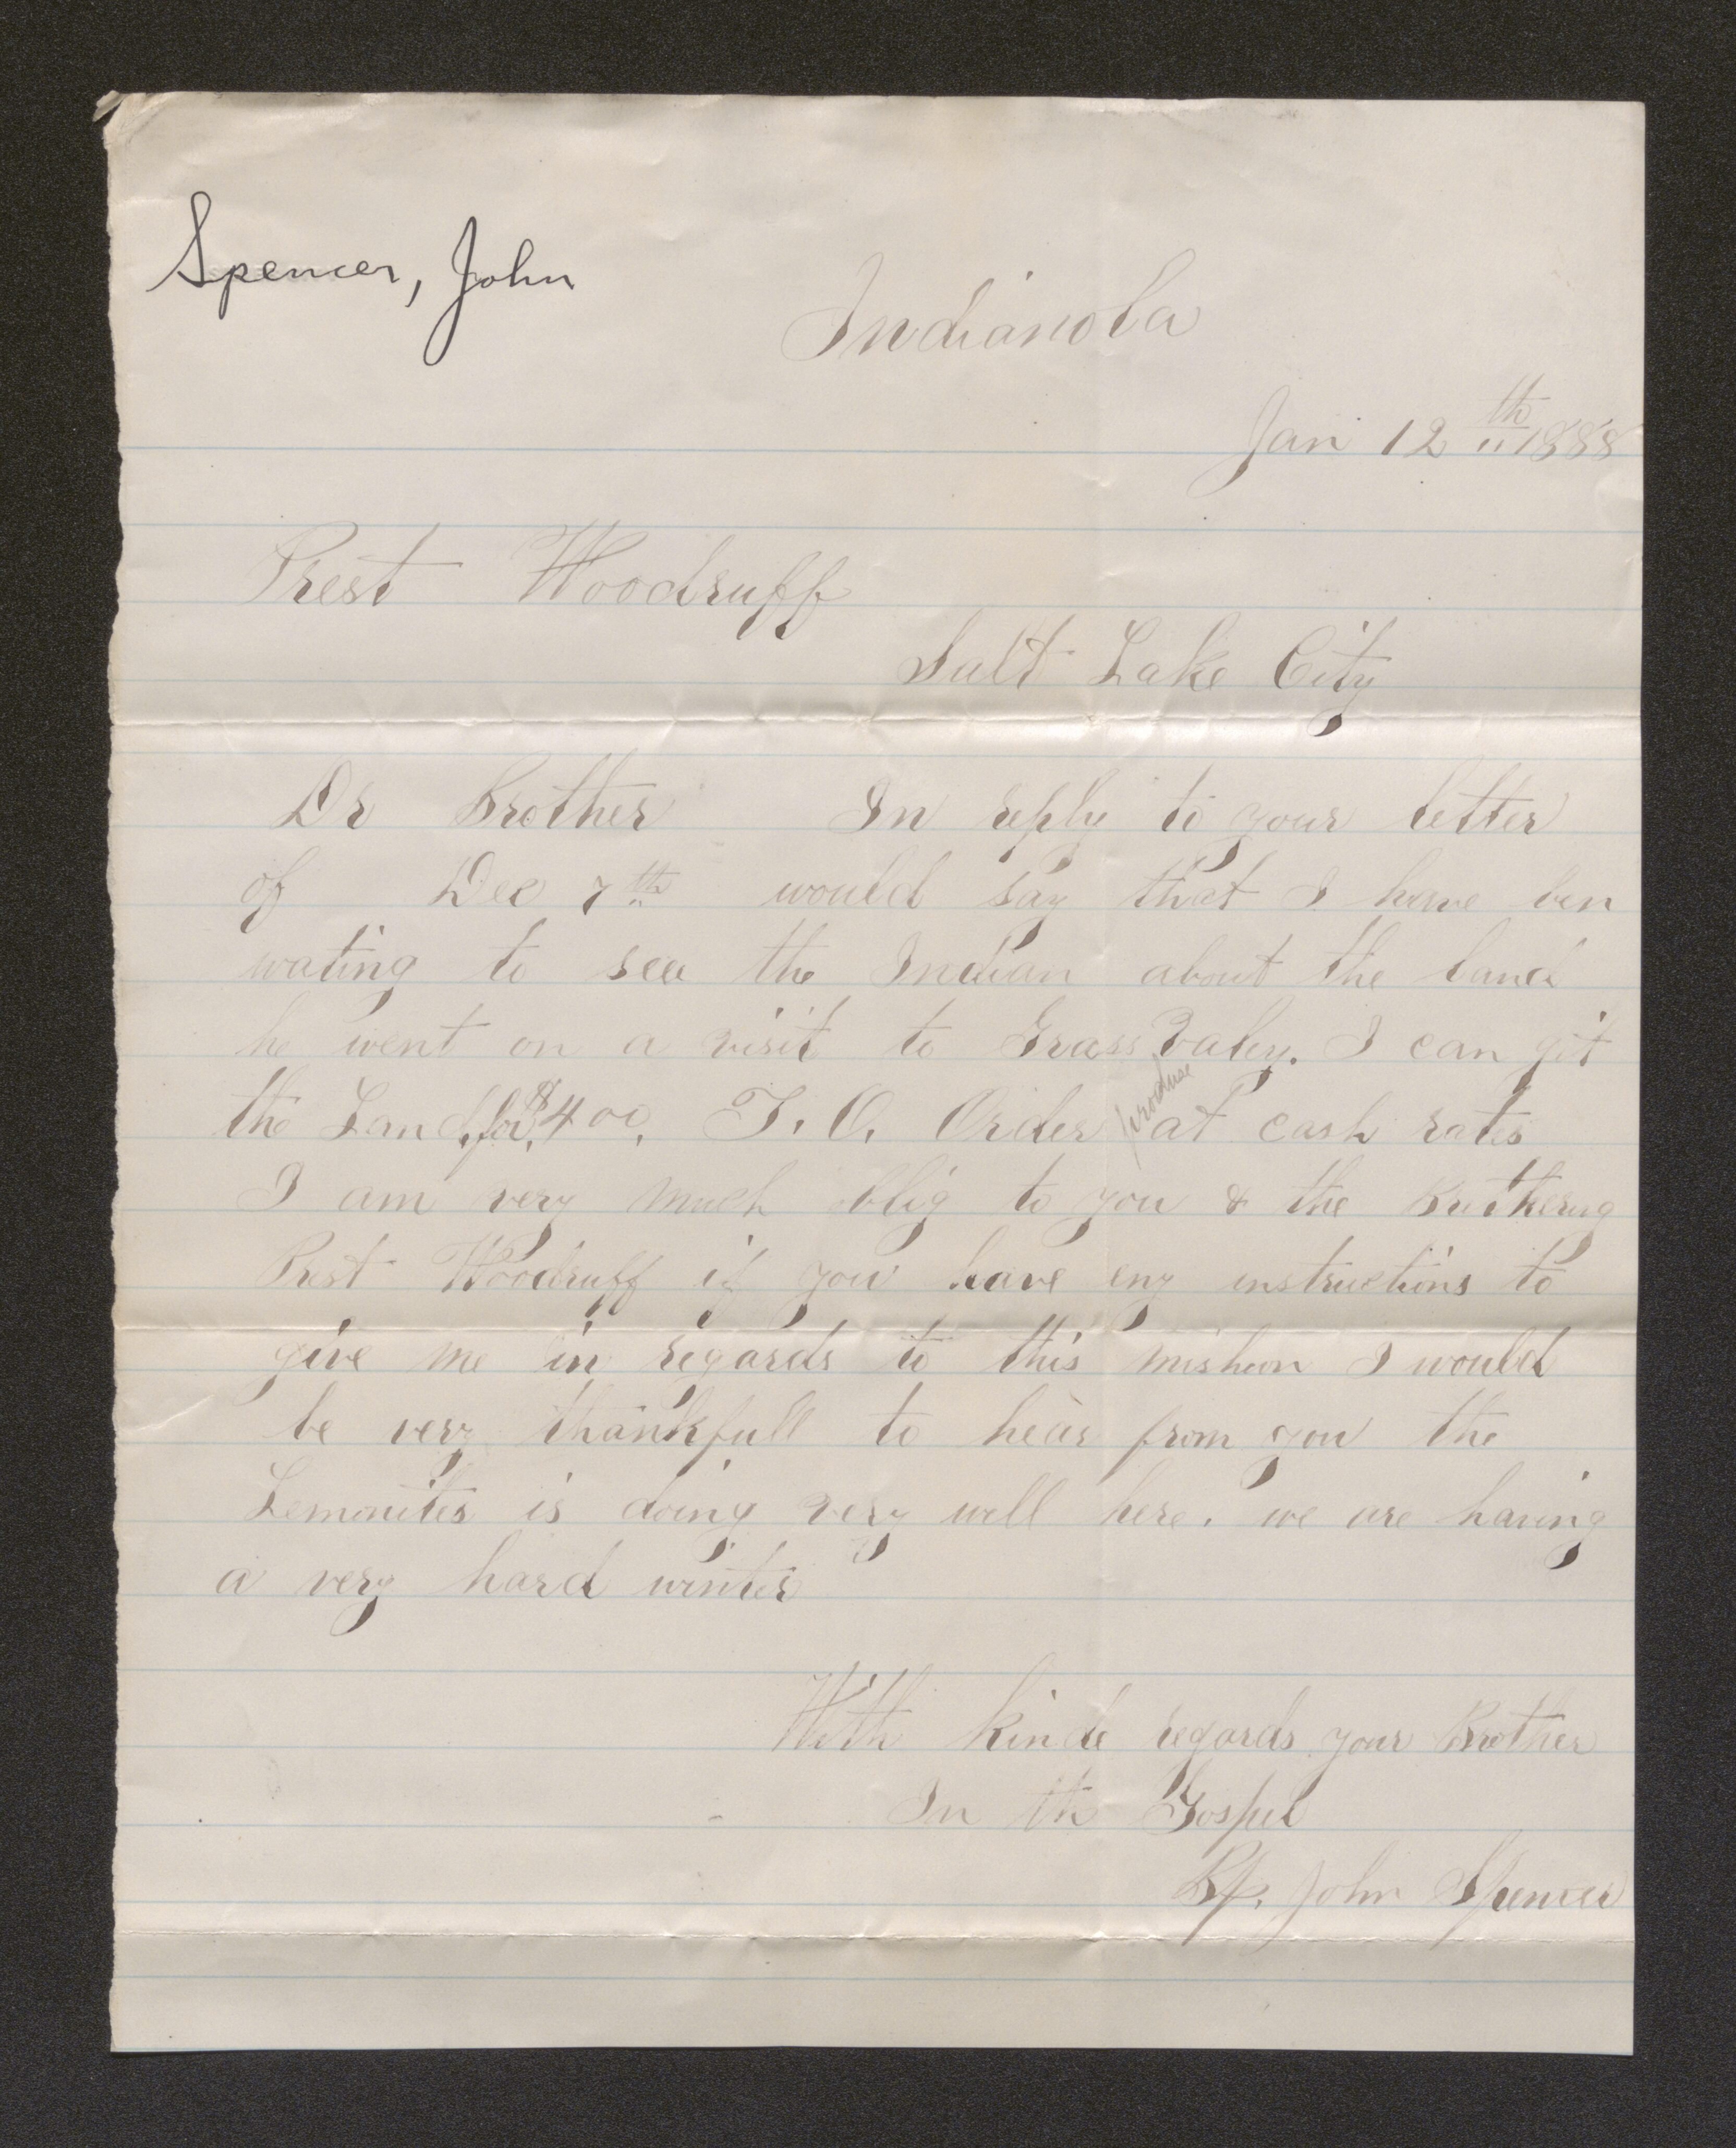 Spencer, John
Indianola
Jan 12th 1888
Prest Woodruff
Salt Lake City
Dr Brother In reply to your letter
of Dec 7th would say that I have ben
wating to see the Indian about the land
he went on a visit to Grass Valey. I can git
the Land, for, $400, T. O. Order produse at cash rates
I am very much oblig to you & the Brothering
Prest Woodruff if you have eny instructions to
give me in regards to this mishon I would
be very thankfull to hear from you the
Lemonites is doing very well here. we are having
a very hard winter
With kinde regards your Brother
In th Gospel
Bp. John Spencer